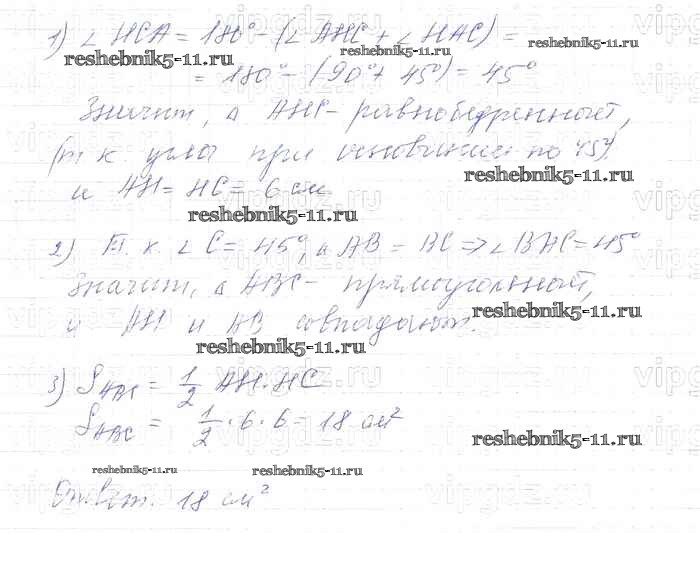 1) ∠HCA = 180° - (∠AHC + ∠HAC) =
= 180° - (90° + 45°) = 45°
Значит, ∆ AHC - равнобедренный,
(т.к. углы при основании по 45°)
и AH = HC = 6 см
2) Т.к. ∠C = 45°, а AB = BC => ∠BAC = 45°
Значит, ∆ ABC - прямоугольный,
и AH и AB совпадают.
3) S ABC = 1/2 AH·HC
S ABC = 1/2 · 6 · 6 = 18 см²
Ответ. 18 см²
reshebnik5-11.ru
reshebnik5-11.ru
reshebnik5-11.ru
reshebnik5-11.ru
reshebnik5-11.ru
reshebnik5-11.ru
reshebnik5-11.ru
reshebnik5-11.ru
reshebnik5-11.ru
reshebnik5-11.ru